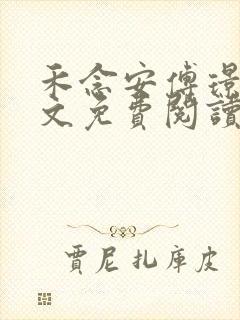 禾念安傅璟
文免費閱讀
賈尼扎庫皮